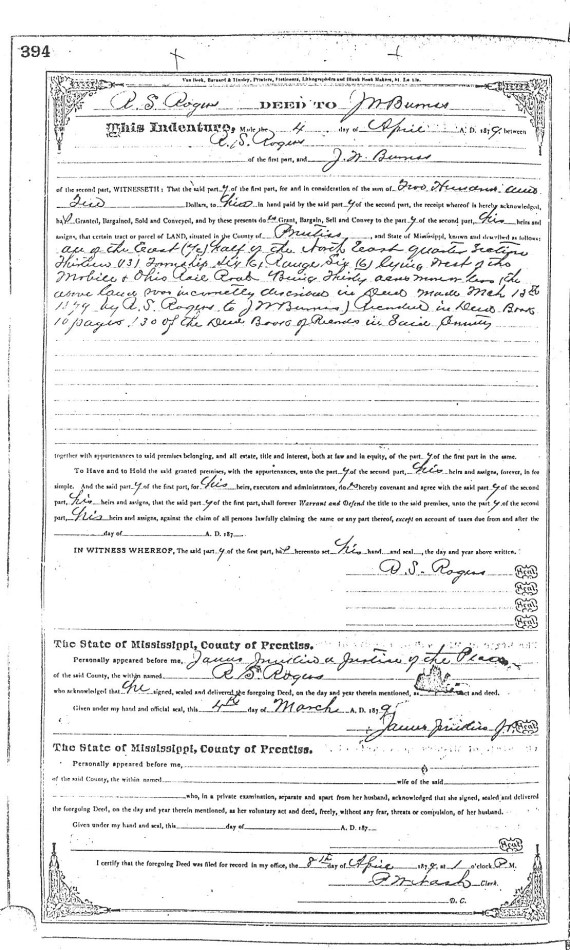 394
Van Beek, Barnard & Tinsley, Printers, Stationers, Lithographers and Blank Book Makers, St. Louis.
R. S. Rogers DEED TO J W Burns
This Indenture, Made the 4 day of April A. D. 1879 between
R. S. Rogers
of the first part, and J. W. Burns
of the second part, WITNESSETH: That the said part y of the first part, for and in consideration of the sum of Two Hundred and
Ten Dollars, to him in hand paid by the said part y of the second part, the receipt whereof is hereby acknowledged,
ha Granted, Bargained, Sold and Conveyed, and by these presents do Grant, Bargain, Sell and Convey to the part y of the second part, his heirs and
assigns, that certain tract or parcel of LAND, situated in the County of Prentiss, and State of Mississippi, known and described as follows:
of the East (1/2) half of the North East quarter Section
Thirteen (13) Township Six (6) Range Six (6) lying West of the
Mobile & Ohio Rail Road Being Thirty acres more or less (the
above land was incorrectly described in Deed made Mch 13th
1879 by R. S. Rogers to J W Burns) Recorded in Deed Book
10 pages 130 of the Deed Book of Records in Said County
together with appurtenances to said premises belonging, and all estate, title and interest, both at law and in equity, of the part y of the first part in the same.
To Have and to Hold the said granted premises, with the appurtenances, unto the part y of the second part, his heirs and assigns, forever, in fee
simple. And the said part y of the first part, for his heirs, executors and administrators, do hereby covenant and agree with the said part y of the second
part, his heirs and assigns, that the said part y of the first part, shall forever Warrant and Defend the title to the said premises, unto the part y of the second
part, his heirs and assigns, against the claim of all persons lawfully claiming the same or any part thereof, except on account of taxes due from and after the
day of A. D. 187
IN WITNESS WHEREOF, The said part y of the first part, ha hereunto set his hand and seal, the day and year above written.
R. S. Rogers Seal
Seal
Seal
Seal
The State of Mississippi, County of Prentiss.
Personally appeared before me, James Jenkins a Justice of the Peace
of the said County, the within named R. S. Rogers
who acknowledged that he signed, sealed and delivered the foregoing Deed, on the day and year therein mentioned, as act and deed.
Given under my hand and official seal, this 4th day of March A. D. 1879
James Jenkins Seal
The State of Mississippi, County of Prentiss.
Personally appeared before me,
of the said County, the within named wife of the said
who, in a private examination, separate and apart from her husband, acknowledged that she signed, sealed and delivered
the foregoing Deed, on the day and year therein mentioned, as her voluntary act and deed, freely, without any fear, threats or compulsion, of her husband.
Given under my hand and seal, this day of A. D. 187
Seal
I certify that the foregoing Deed was filed for record in my office, the 8th day of April 1879, at 1 o'clock P M.
P. M. Nash Clerk.
D. C.